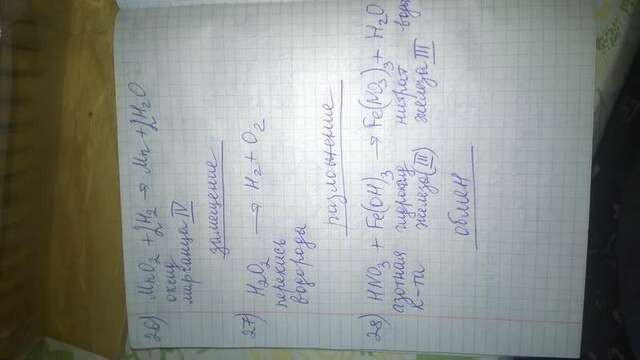 26) MnO₂ + 2H₂ → Mn + 2H₂O
оксид
марганца IV
замещение
27) H₂O₂ → H₂ + O₂
перекись
водорода
разложение
28) HNO₃ + Fe(OH)₃ → Fe(NO₃)₃ + H₂O
азотная гидроксид нитрат вода
к-та железа(III) железа III
обмен